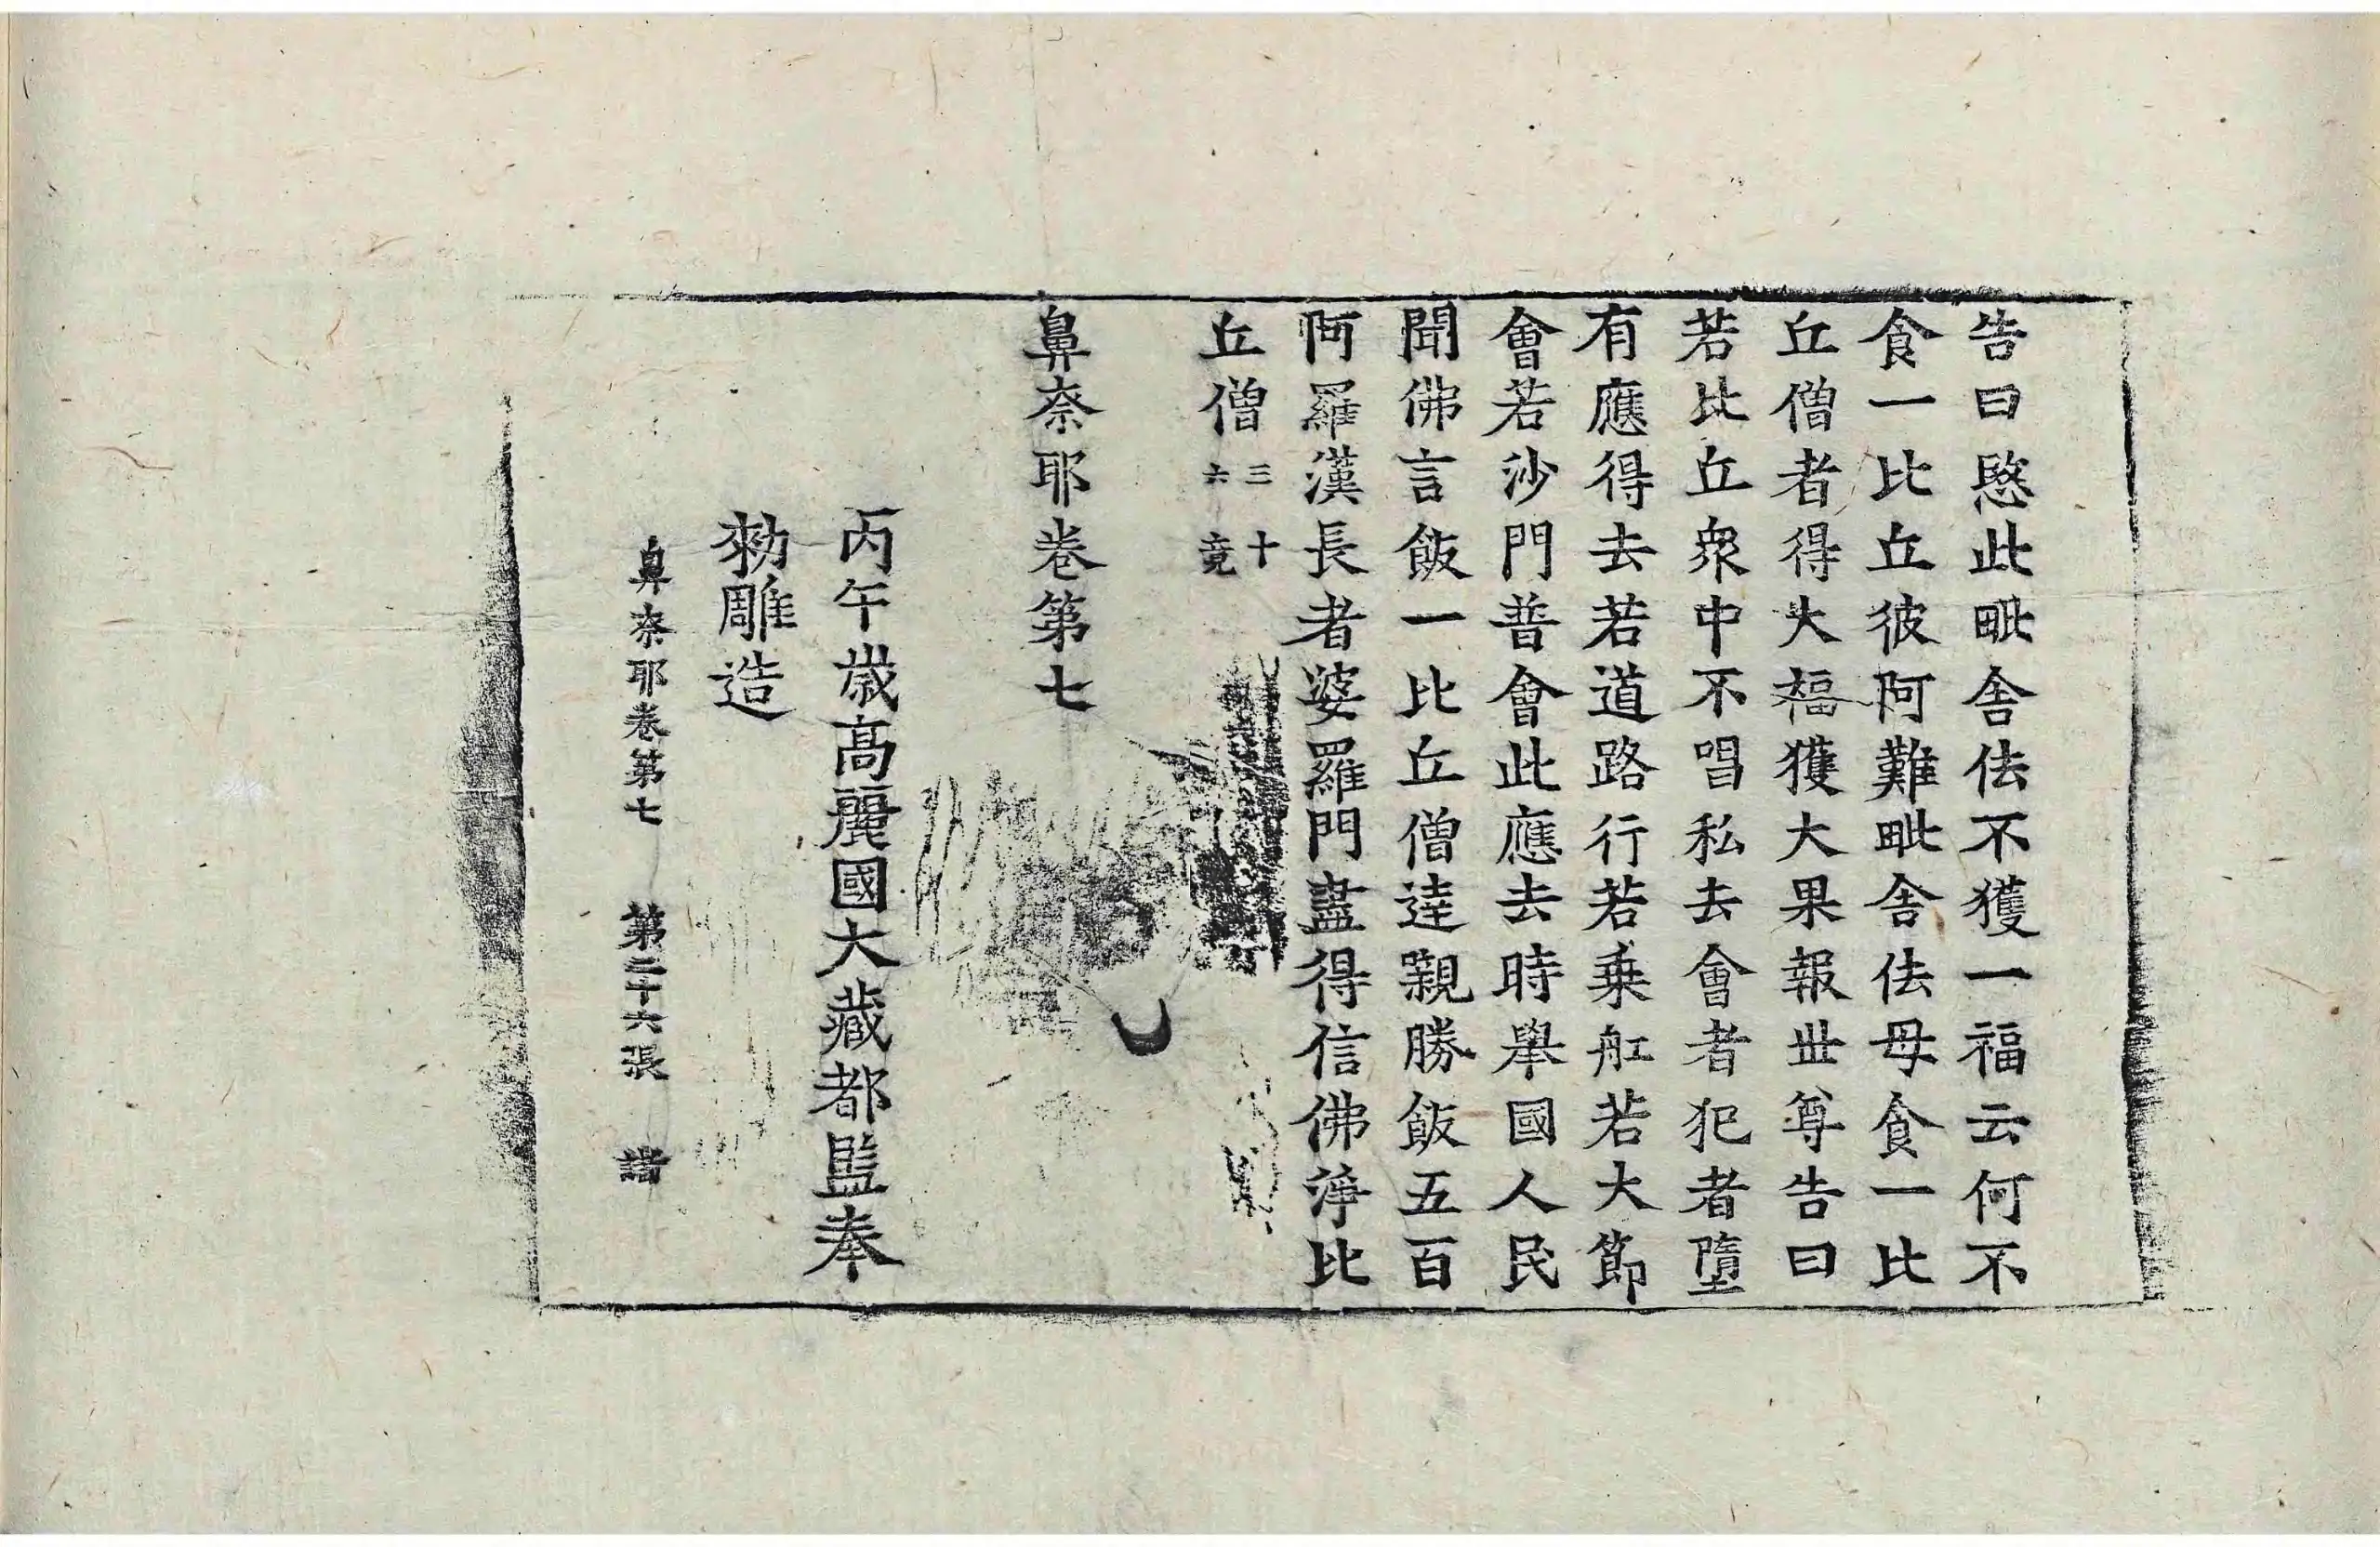 告曰愍此毗舍佉不獲一福云何不
食一比丘彼阿難毗舍佉母食一比
丘僧者得大福獲大果報世尊告曰
若比丘衆中不唱私去會者犯者墮
有應得去若道路行若乗舡若大節
會若沙門普會此應去時舉國人民
聞佛言飯一比丘僧達親勝飯五百
阿羅漢長者婆羅門盡得信佛淨比
丘僧三十六竟
鼻奈耶卷第七
丙午歲高麗國大藏都監奉
勑雕造
鼻奈耶卷第七 第二十六張 諸